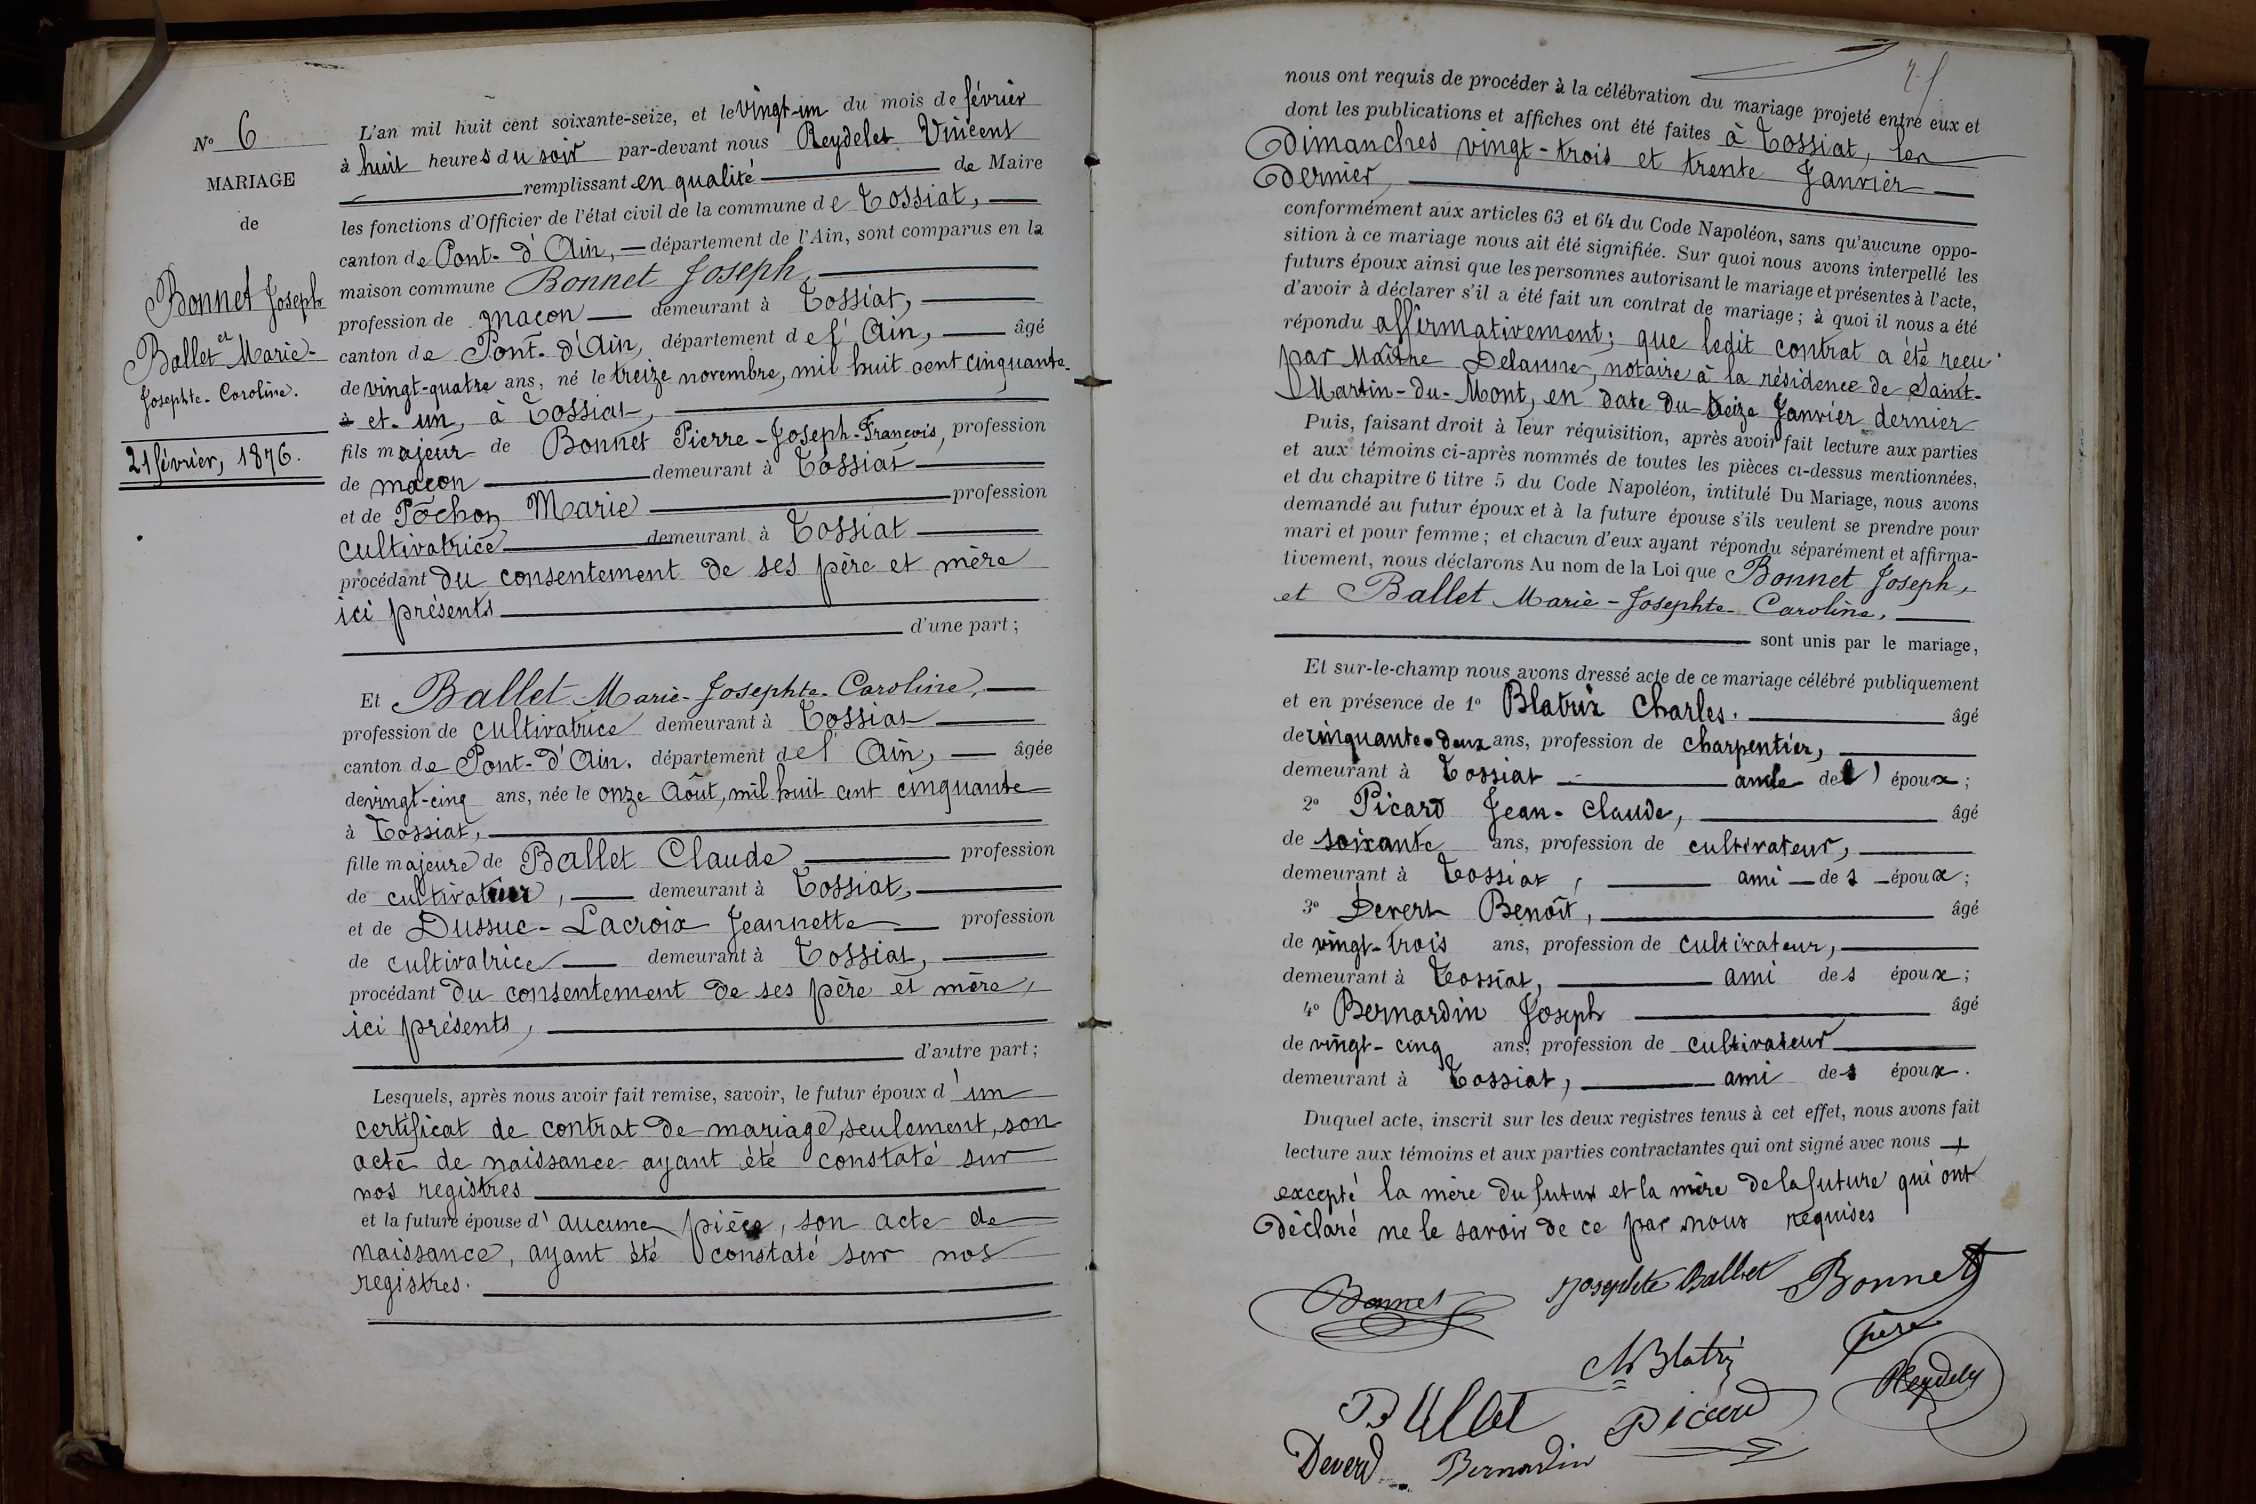 N° 6
MARIAGE
de
Bonnet Joseph
et
Ballet Marie-
Josephte-Caroline.
21 février, 1876.
L'an mil huit cent soixante-seize, et le vingt-un du mois de février
à huit heures du soir par-devant nous Reydelet Vincent
remplissant en qualité de Maire
les fonctions d'Officier de l'état civil de la commune de Tossiat,
canton de Pont-d'Ain, département de l'Ain, sont comparus en la
maison commune Bonnet Joseph,
profession de maçon demeurant à Tossiat,
canton de Pont-d'Ain, département de l'Ain, âgé
de vingt-quatre ans, né le treize novembre, mil huit cent cinquante-
à et-un, à Tossiat,
fils majeur de Bonnet Pierre-Joseph-François, profession
de maçon demeurant à Tossiat
et de Pochon Marie profession
cultivatrice demeurant à Tossiat
procédant du consentement de ses père et mère
ici présents
d'une part;
Et Ballet Marie-Josephte-Caroline,
profession de cultivatrice demeurant à Tossiat
canton de Pont-d'Ain, département de l'Ain, âgée
de vingt-cinq ans, née le onze Août, mil huit cent cinquante
à Tossiat,
fille majeure de Ballet Claude profession
de cultivateur, demeurant à Tossiat,
et de Dussuc-Lacroix Jeannette profession
de cultivatrice demeurant à Tossiat,
procédant du consentement de ses père et mère,
ici présents,
d'autre part;
Lesquels, après nous avoir fait remise, savoir, le futur époux d'un
certificat de contrat de mariage, seulement, son
acte de naissance ayant été constaté sur
nos registres
et la future épouse d'aucune pièce, son acte de
naissance, ayant été constaté sur nos
registres.
nous ont requis de procéder à la célébration du mariage projeté entre eux et
dont les publications et affiches ont été faites à Tossiat, les
Dimanches vingt-trois et trente Janvier
Dernier,
conformément aux articles 63 et 64 du Code Napoléon, sans qu'aucune oppo-
sition à ce mariage nous ait été signifiée. Sur quoi nous avons interpellé les
futurs époux ainsi que les personnes autorisant le mariage et présentes à l'acte,
d'avoir à déclarer s'il a été fait un contrat de mariage; à quoi il nous a été
répondu affirmativement; que ledit contrat a été reçu
par Maître Delaune, notaire à la résidence de Saint-
Martin-du-Mont, en date du treize Janvier dernier
Puis, faisant droit à leur réquisition, après avoir fait lecture aux parties
et aux témoins ci-après nommés de toutes les pièces ci-dessus mentionnées,
et du chapitre 6 titre 5 du Code Napoléon, intitulé Du Mariage, nous avons
demandé au futur époux et à la future épouse s'ils veulent se prendre pour
mari et pour femme; et chacun d'eux ayant répondu séparément et affirma-
tivement, nous déclarons Au nom de la Loi que Bonnet Joseph,
et Ballet Marie-Josephte-Caroline,
sont unis par le mariage,
Et sur-le-champ nous avons dressé acte de ce mariage célébré publiquement
et en présence de 1° Blatrix Charles. âgé
de cinquante-deux ans, profession de charpentier,
demeurant à Tossiat oncle de l'époux;
2° Picard Jean-Claude, âgé
de soixante ans, profession de cultivateur,
demeurant à Tossiat, ami des époux;
3° Devert Benoît, âgé
de vingt-trois ans, profession de cultivateur,
demeurant à Tossiat, ami des époux;
4° Bernardin Joseph âgé
de vingt-cinq ans, profession de cultivateur
demeurant à Tossiat, ami des époux.
Duquel acte, inscrit sur les deux registres tenus à cet effet, nous avons fait
lecture aux témoins et aux parties contractantes qui ont signé avec nous
excepté la mère du futur et la mère de la future qui ont
déclaré ne le savoir de ce par nous requises
Bonnet Josephte Ballet Bonnet
père
Ch Blatrix
Reydelet
Ballet Picard
Deverd Bernardin